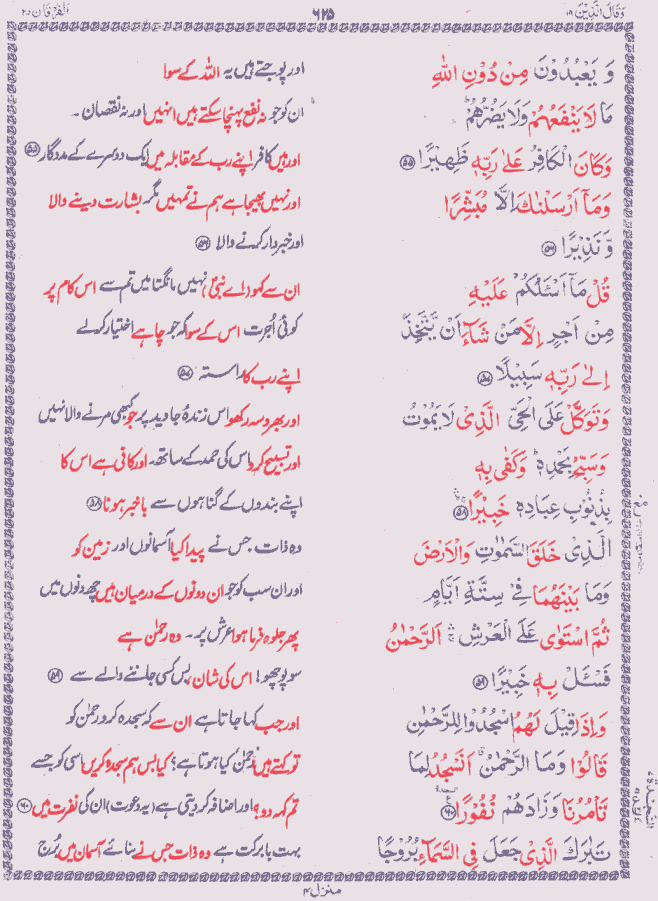 وَقَالَ الَّذِیْنَ ۱۹
۶۲۵
الفرقان ۲۵
وَ یَعْبُدُوْنَ مِنْ دُوْنِ اللّٰهِ
اور پوجتے ہیں یہ اللہ کے سوا
مَا لَا یَنْفَعُهُمْ وَلَا یَضُرُّهُمْ ؕ
ان کو جو نہ نفع پہنچا سکتے ہیں انہیں اور نہ نقصان۔
وَكَانَ الْكَافِرُ عَلٰى رَبِّهٖ ظَهِیْرًا ۵۵
اور ہیں کافر اپنے رب کے مقابلہ میں ایک دوسرے کے مددگار ۵۵
وَمَاۤ اَرْسَلْنٰكَ اِلَّا مُبَشِّرًا
اور نہیں بھیجا ہے ہم نے تمہیں مگر بشارت دینے والا
وَّ نَذِیْرًا ۵۶
اور خبردار کرنے والا ۵۶
قُلْ مَاۤ اَسْـَٔلُكُمْ عَلَیْهِ
ان سے کہو (اے نبی) نہیں مانگتا میں تم سے اس کام پر
مِنْ اَجْرٍ اِلَّا مَنْ شَآءَ اَنْ یَّتَّخِذَ
کوئی اُجرت اس کے سوا کہ جو چاہے اختیار کرلے
اِلٰى رَبِّهٖ سَبِیْلًا ۵۷
اپنے رب کا راستہ ۵۷
وَتَوَكَّلْ عَلَى الْحَیِّ الَّذِیْ لَا یَمُوْتُ
اور بھروسہ رکھو اس زندہ جاوید پر جو کبھی مرنے والا نہیں
وَسَبِّحْ بِحَمْدِهٖ ؕ وَكَفٰى بِهٖ
اور تسبیح کرو اس کی حمد کے ساتھ۔ اور کافی ہے اس کا
بِذُنُوْبِ عِبَادِهٖ خَبِیْرًا ۵۸
اپنے بندوں کے گناہوں سے باخبر ہونا ۵۸
الَّذِیْ خَلَقَ السَّمٰوٰتِ وَالْاَرْضَ
وہ ذات جس نے پیدا کیا آسمانوں اور زمین کو
وَمَا بَیْنَهُمَا فِیْ سِتَّةِ اَیَّامٍ
اور ان سب کو جو ان دونوں کے درمیان ہیں چھ دنوں میں
ثُمَّ اسْتَوٰى عَلَى الْعَرْشِ ۛۚ اَلرَّحْمٰنُ
پھر جلوہ فرما ہوا عرش پر۔ وہ رحمٰن ہے
فَسْـَٔلْ بِهٖ خَبِیْرًا ۵۹
سو پوچھو! اس کی شان بس کسی جاننے والے سے ۵۹
وَاِذَا قِیْلَ لَهُمُ اسْجُدُوْا لِلرَّحْمٰنِ
اور جب کہا جاتا ہے ان سے کہ سجدہ کرو رحمٰن کو
قَالُوْا وَمَا الرَّحْمٰنُ ۗ اَنَسْجُدُ لِمَا
تو کہتے ہیں رحمٰن کیا ہوتا ہے؟ کیا بس ہم سجدہ کریں اسی کو جسے
تَاْمُرُنَا وَزَادَهُمْ نُفُوْرًا ۶۰
تم کہہ دو؟ اور اضافہ کر دیتی ہے (یہ دعوت) ان کی نفرت میں ۶۰
تَبٰرَكَ الَّذِیْ جَعَلَ فِی السَّمَآءِ بُرُوْجًا
بہت بابرکت ہے وہ ذات جس نے بنائے آسمان میں بُرج
منزل ۴